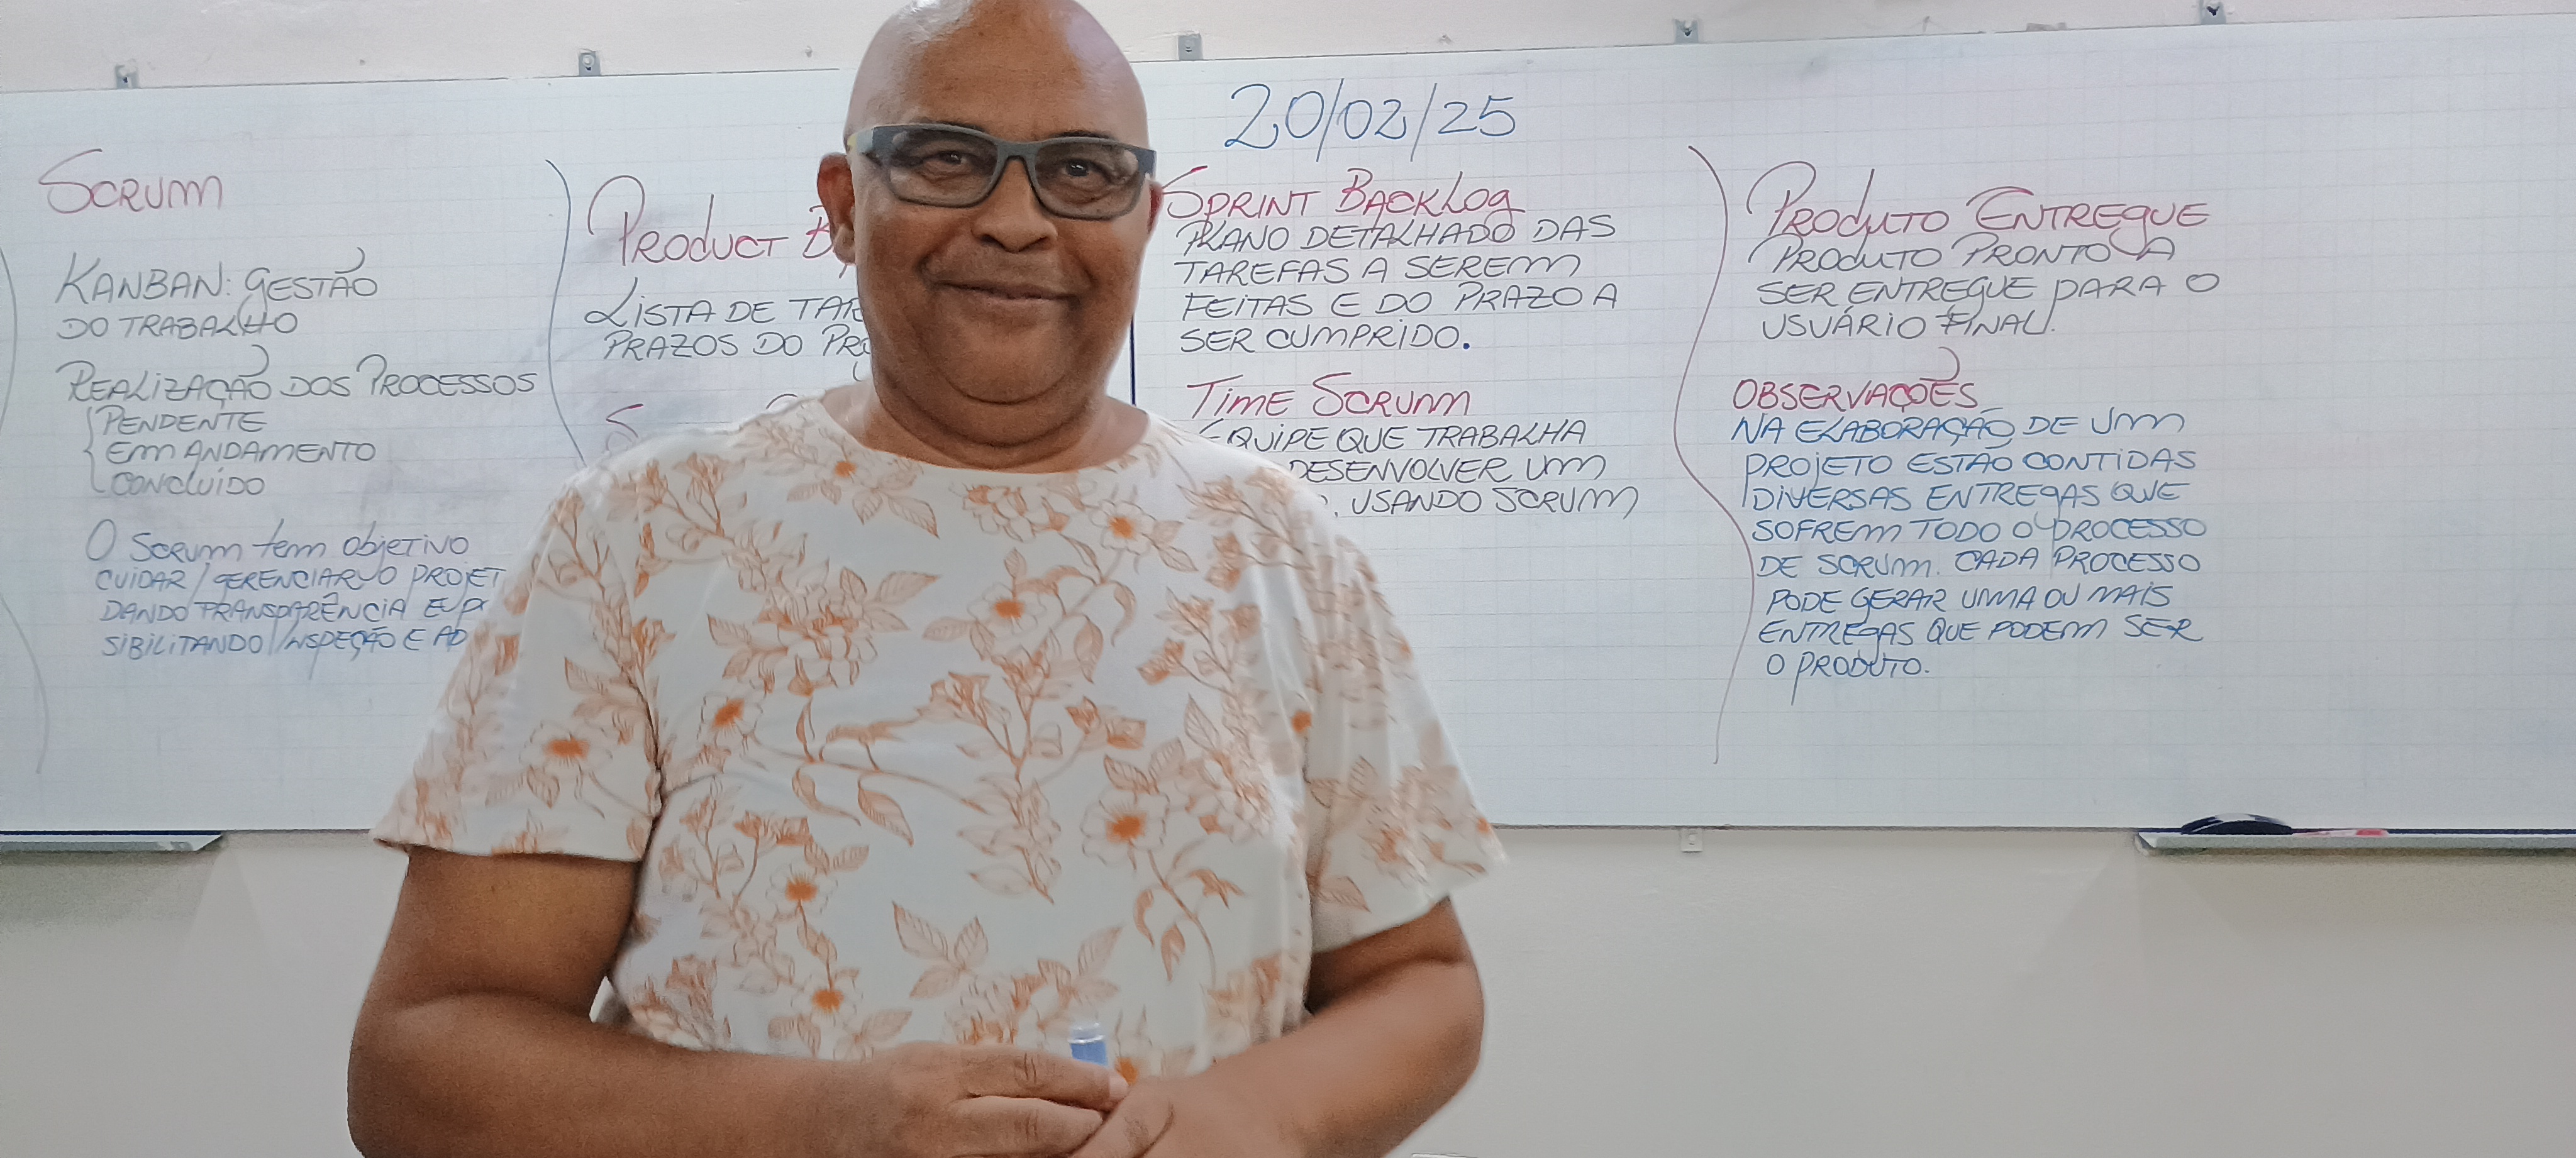 20/02/25
SCRUM
KANBAN: GESTÃO
DO TRABALHO
REALIZAÇÃO DOS PROCESSOS
PENDENTE
EM ANDAMENTO
CONCLUÍDO
O SCRUM tem objetivo
CUIDAR/GERENCIAR O PROJET
DANDO TRANSPARÊNCIA E
SIBILITANDO INSPEÇÃO E AD
PRODUCT B
LISTA DE TAR
PRAZOS DO PRO
S
SPRINT BACKLOG
PLANO DETALHADO DAS
TAREFAS A SEREM
FEITAS E DO PRAZO A
SER CUMPRIDO.
TIME SCRUM
EQUIPE QUE TRABALHA
DESENVOLVER UM
, USANDO SCRUM
PRODUTO ENTREGUE
PRODUTO PRONTO A
SER ENTREGUE PARA O
USUÁRIO FINAL.
OBSERVAÇÕES
NA ELABORAÇÃO DE UM
PROJETO ESTÃO CONTIDAS
DIVERSAS ENTREGAS QUE
SOFREM TODO O PROCESSO
DE SCRUM. CADA PROCESSO
PODE GERAR UMA OU MAIS
ENTREGAS QUE PODEM SER
O PRODUTO.